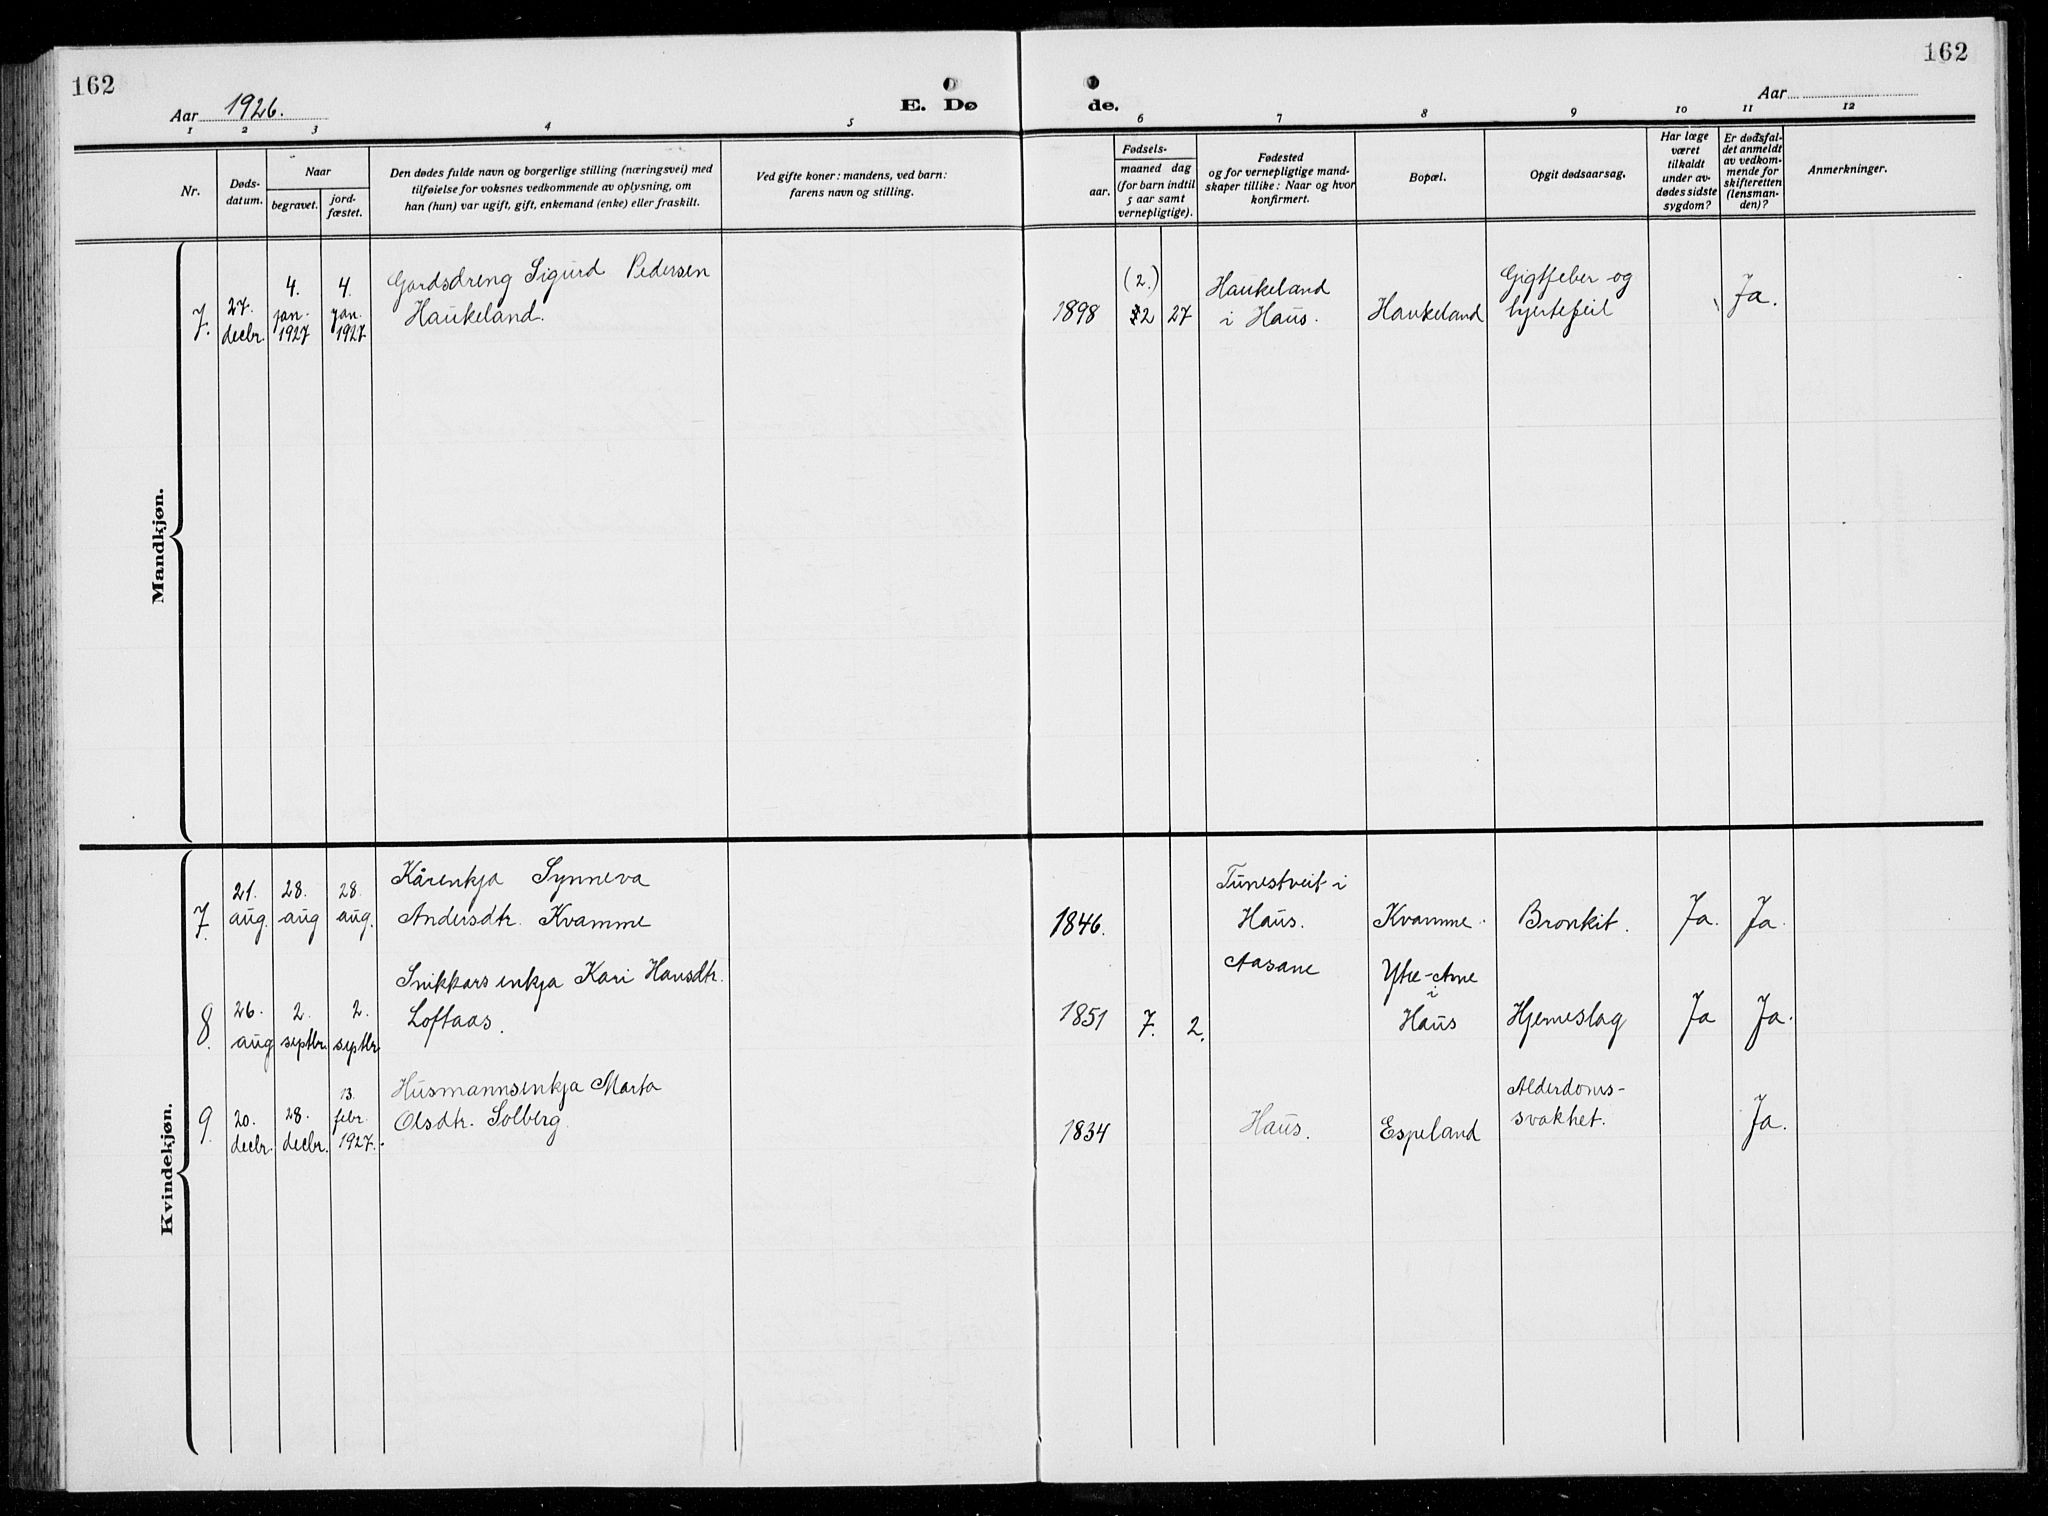 162
162
Aar 1926.
E. Dø
de.
Aar
1 2 3 4 5 6 7 8 9 10 11 12
Nr.
Døds-
datum.
Naar
begravet.
jord-
fæstet.
Den dødes fulde navn og borgerlige stilling (næringsvei) med
tilføielse for voksnes vedkommende av oplysning, om
han (hun) var ugift, gift, enkemand (enke) eller fraskilt.
Ved gifte koner: mandens, ved barn:
farens navn og stilling.
Fødsels-
aar.
maaned dag
(for barn indtil
5 aar samt
vernepligtige).
Fødested
og for vernepligtige mand-
skaper tillike: Naar og hvor
konfirmert.
Bopæl.
Opgit dødsaarsag.
Har læge
været
tilkaldt
under av-
dødes sidste
sygdom?
Er dødsfal-
det anmeldt
av vedkom-
mende for
skifteretten
(lensman-
den)?
Anmerkninger.
Mandkjøn.
7.
27.
decbr.
4.
jan.
1927
4.
jan.
1927
Gardsdreng Sigurd Pedersen
Haukeland.
1898
(2.)
2
27
Haukeland
i Haus.
Haukeland
Gigtfeber og
hjertefeil
Ja.
Kvindekjøn.
7.
21.
aug.
28.
aug
28.
aug.
Kårenkja Synneva
Andersdtr. Kvamme
1846.
Tunestveit i
Haus.
Kvamme.
Bronkit.
Ja.
Ja.
8.
26.
aug
2.
septbr.
2.
septbr.
Snikkarsenkja Kari Hansdtr.
Loftaas.
1851
7.
2.
Aasane
Ytre-Arne
i
Haus
Hjerneslag
Ja
Ja.
9.
20.
decbr.
28.
decbr.
13.
febr.
1927.
Husmannsenkja Marta
Olsdtr. Solberg.
1834
Haus.
Espeland
Alderdoms-
svakhet.
Ja.